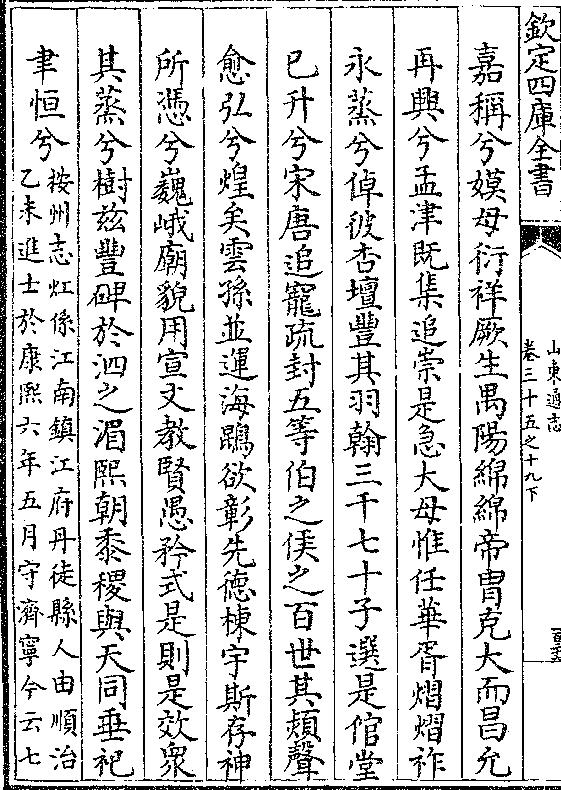 欽定四庫全書
山東通志
卷三十五之十九下
嘉稱兮嫫母衍祥厥生禺陽綿綿帝胄克大而昌允
再興兮孟津既集追崇是急大母惟任華胥熠熠祚
永蒸兮倬彼杏壇豐其羽翰三千七十子選是倌堂
已升兮宋唐追寵疏封五等伯之侯之百世其頻聲
愈弘兮煌矣雲孫並運海鵾欲彰先德棟宇斯存神
所憑兮巍峨廟貌用宣文教賢愚矜式是則是效衆
其蒸兮樹兹豐碑於泗之湄熙朝黍稷與天同垂祀
聿恒兮
按州志灴係江南鎮江府丹徒縣人由順治
乙未進士於康熙六年五月守濟寧今云七